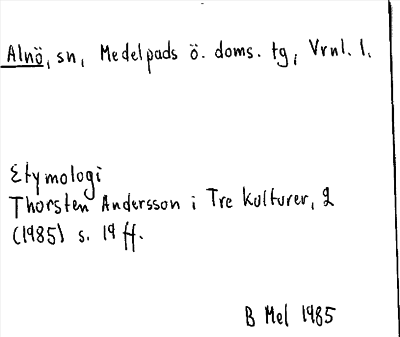 Alnö, sn, Medelpads ö. doms. tg, Vrnl. l.
Etymologi
Thorsten Andersson i Tre kulturer, 2
(1985) s. 19 ff.
B Mel 1985